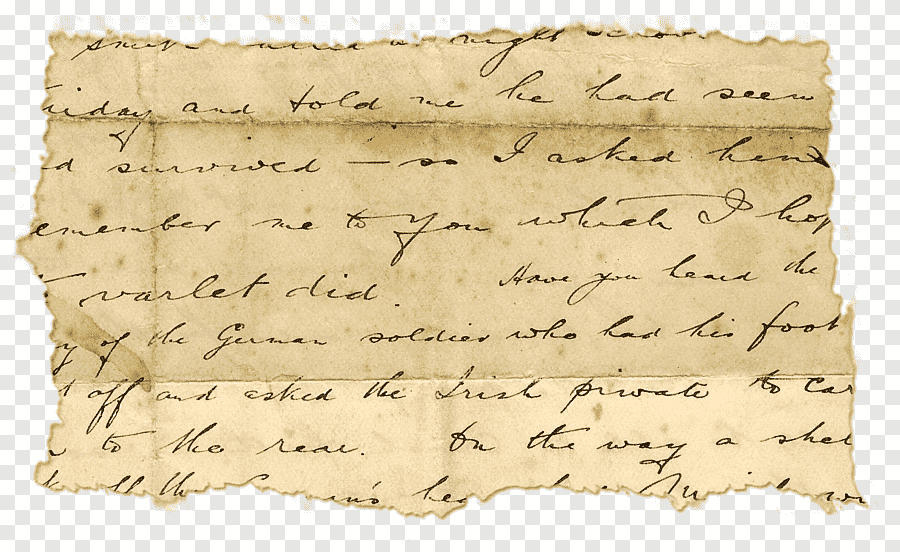 night
and told me he had seen
survived — so I asked him
ember me to you which I hop
varlet did. Have you heard the
y of the German soldier who had his foot
t off and asked the Irish private to car
to the rear. On the way a shel
off the German's hea